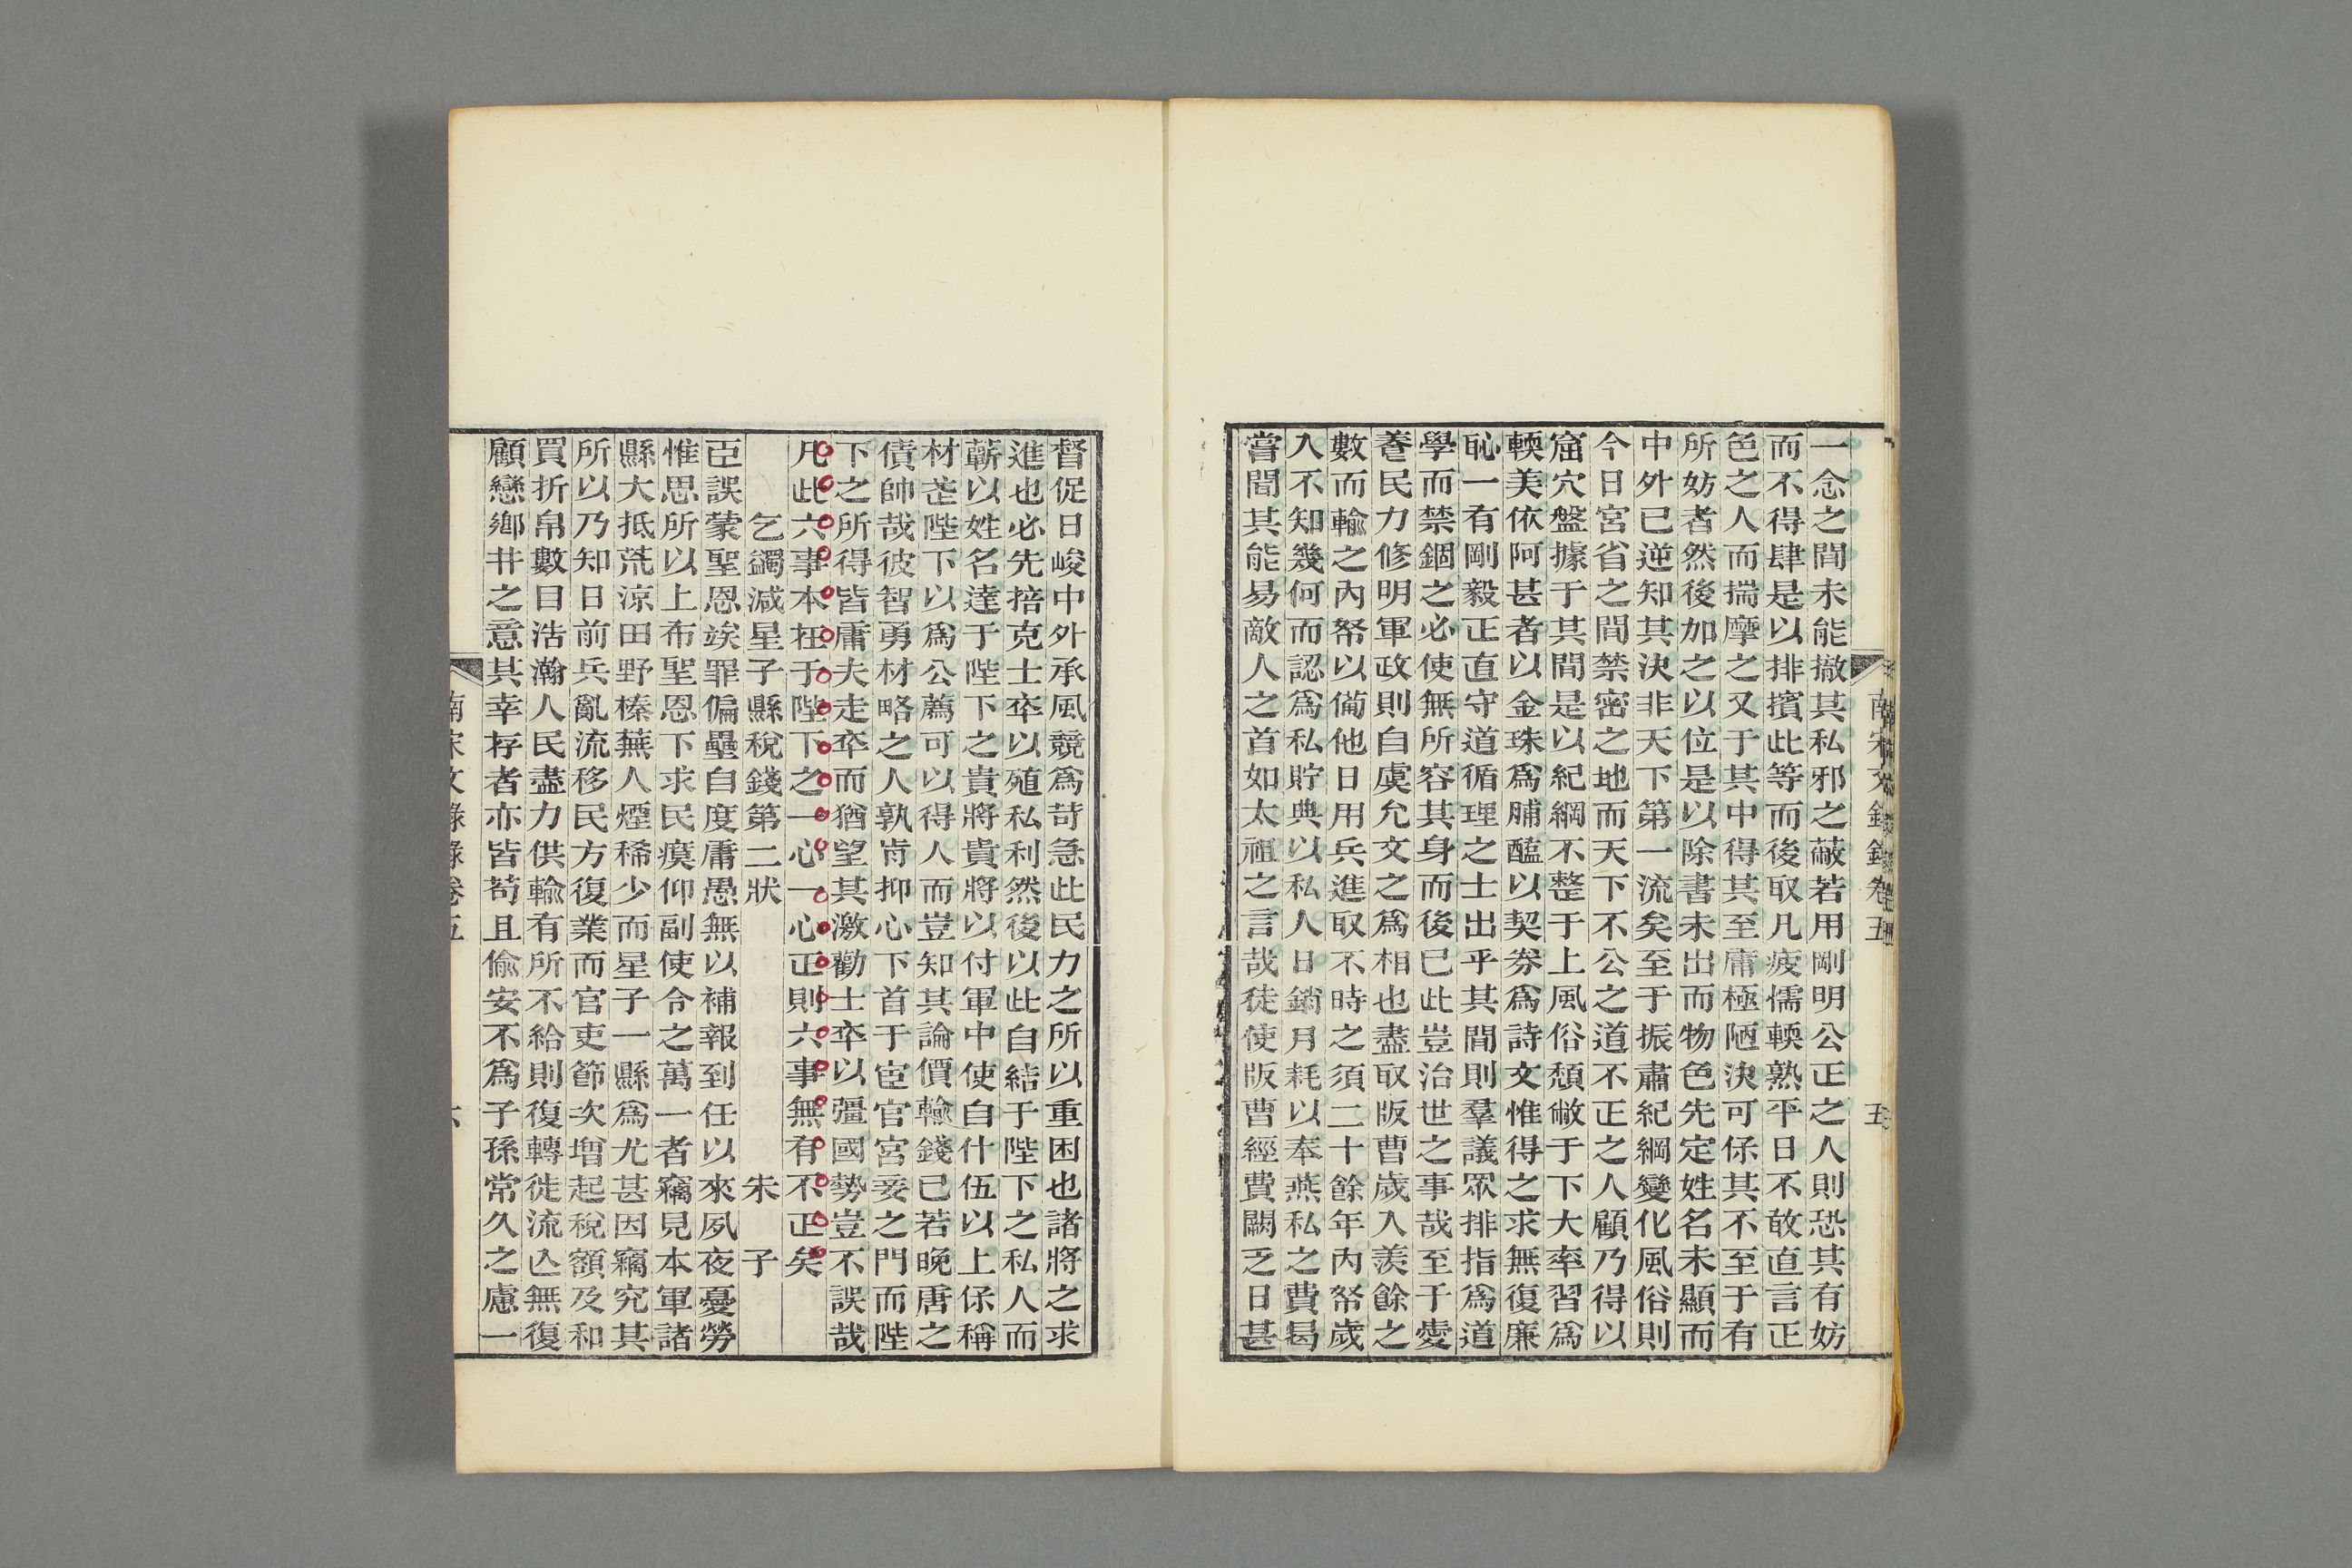 一念之間未能撤其私邪之蔽若用剛明公正之人則恐其有妨
而不得肆是以排擯此等而後取凡疲懦輭熟平日不敢直言正
色之人而揣摩之又于其中得其至庸極陋決可保其不至于有
所妨者然後加之以位是以除書未出而物色先定姓名未顯而
中外已逆知其決非天下第一流矣至于振肅紀綱變化風俗則
今日宮省之間禁密之地而天下不公之道不正之人顧乃得以
窟穴盤據于其間是以紀綱不整于上風俗頹敝于下大率習爲
輭美依阿甚者以金珠爲脯醢以契券爲詩文惟得之求無復廉
恥一有剛毅正直守道循理之士出乎其間則羣議眾排指爲道
學而禁錮之必使無所容其身而後已此豈治世之事哉至于愛
養民力修明軍政則自虞允文之爲相也盡取版曹歲入羨餘之
數而輸之內帑以備他日用兵進取不時之須二十餘年內帑歲
入不知幾何而認爲私貯典以私人日銷月耗以奉燕私之費曷
嘗聞其能易敵人之首如太祖之言哉徒使版曹經費闕乏日甚
南宋文錄錄卷五
五
督促日峻中外承風競爲苛急此民力之所以重困也諸將之求
進也必先掊克士卒以殖私利然後以此自結于陛下之私人而
蘄以姓名達于陛下之貴將貴將以付軍中使自什伍以上保稱
材武陛下以爲公薦可以得人而豈知其論價輸錢已若晚唐之
債帥哉彼智勇材略之人孰肯抑心下首于宦官宮妾之門而陛
下之所得皆庸夫走卒而猶望其激勸士卒以彊國勢豈不誤哉
凡此六事本在于陛下之一心一心正則六事無有不正矣
乞蠲減星子縣稅錢第二狀
朱子
臣誤蒙聖恩竢罪偏壘自度庸愚無以補報到任以來夙夜憂勞
惟思所以上布聖恩下求民瘼仰副使令之萬一者竊見本軍諸
縣大抵荒涼田野榛蕪人煙稀少而星子一縣爲尤甚因竊究其
所以乃知日前兵亂流移民方復業而官吏節次增起稅額及和
買折帛數目浩瀚人民盡力供輸有所不給則復轉徙流亾無復
顧戀鄉井之意其幸存者亦皆苟且偷安不爲子孫常久之慮一
南宋文錄錄卷五
六